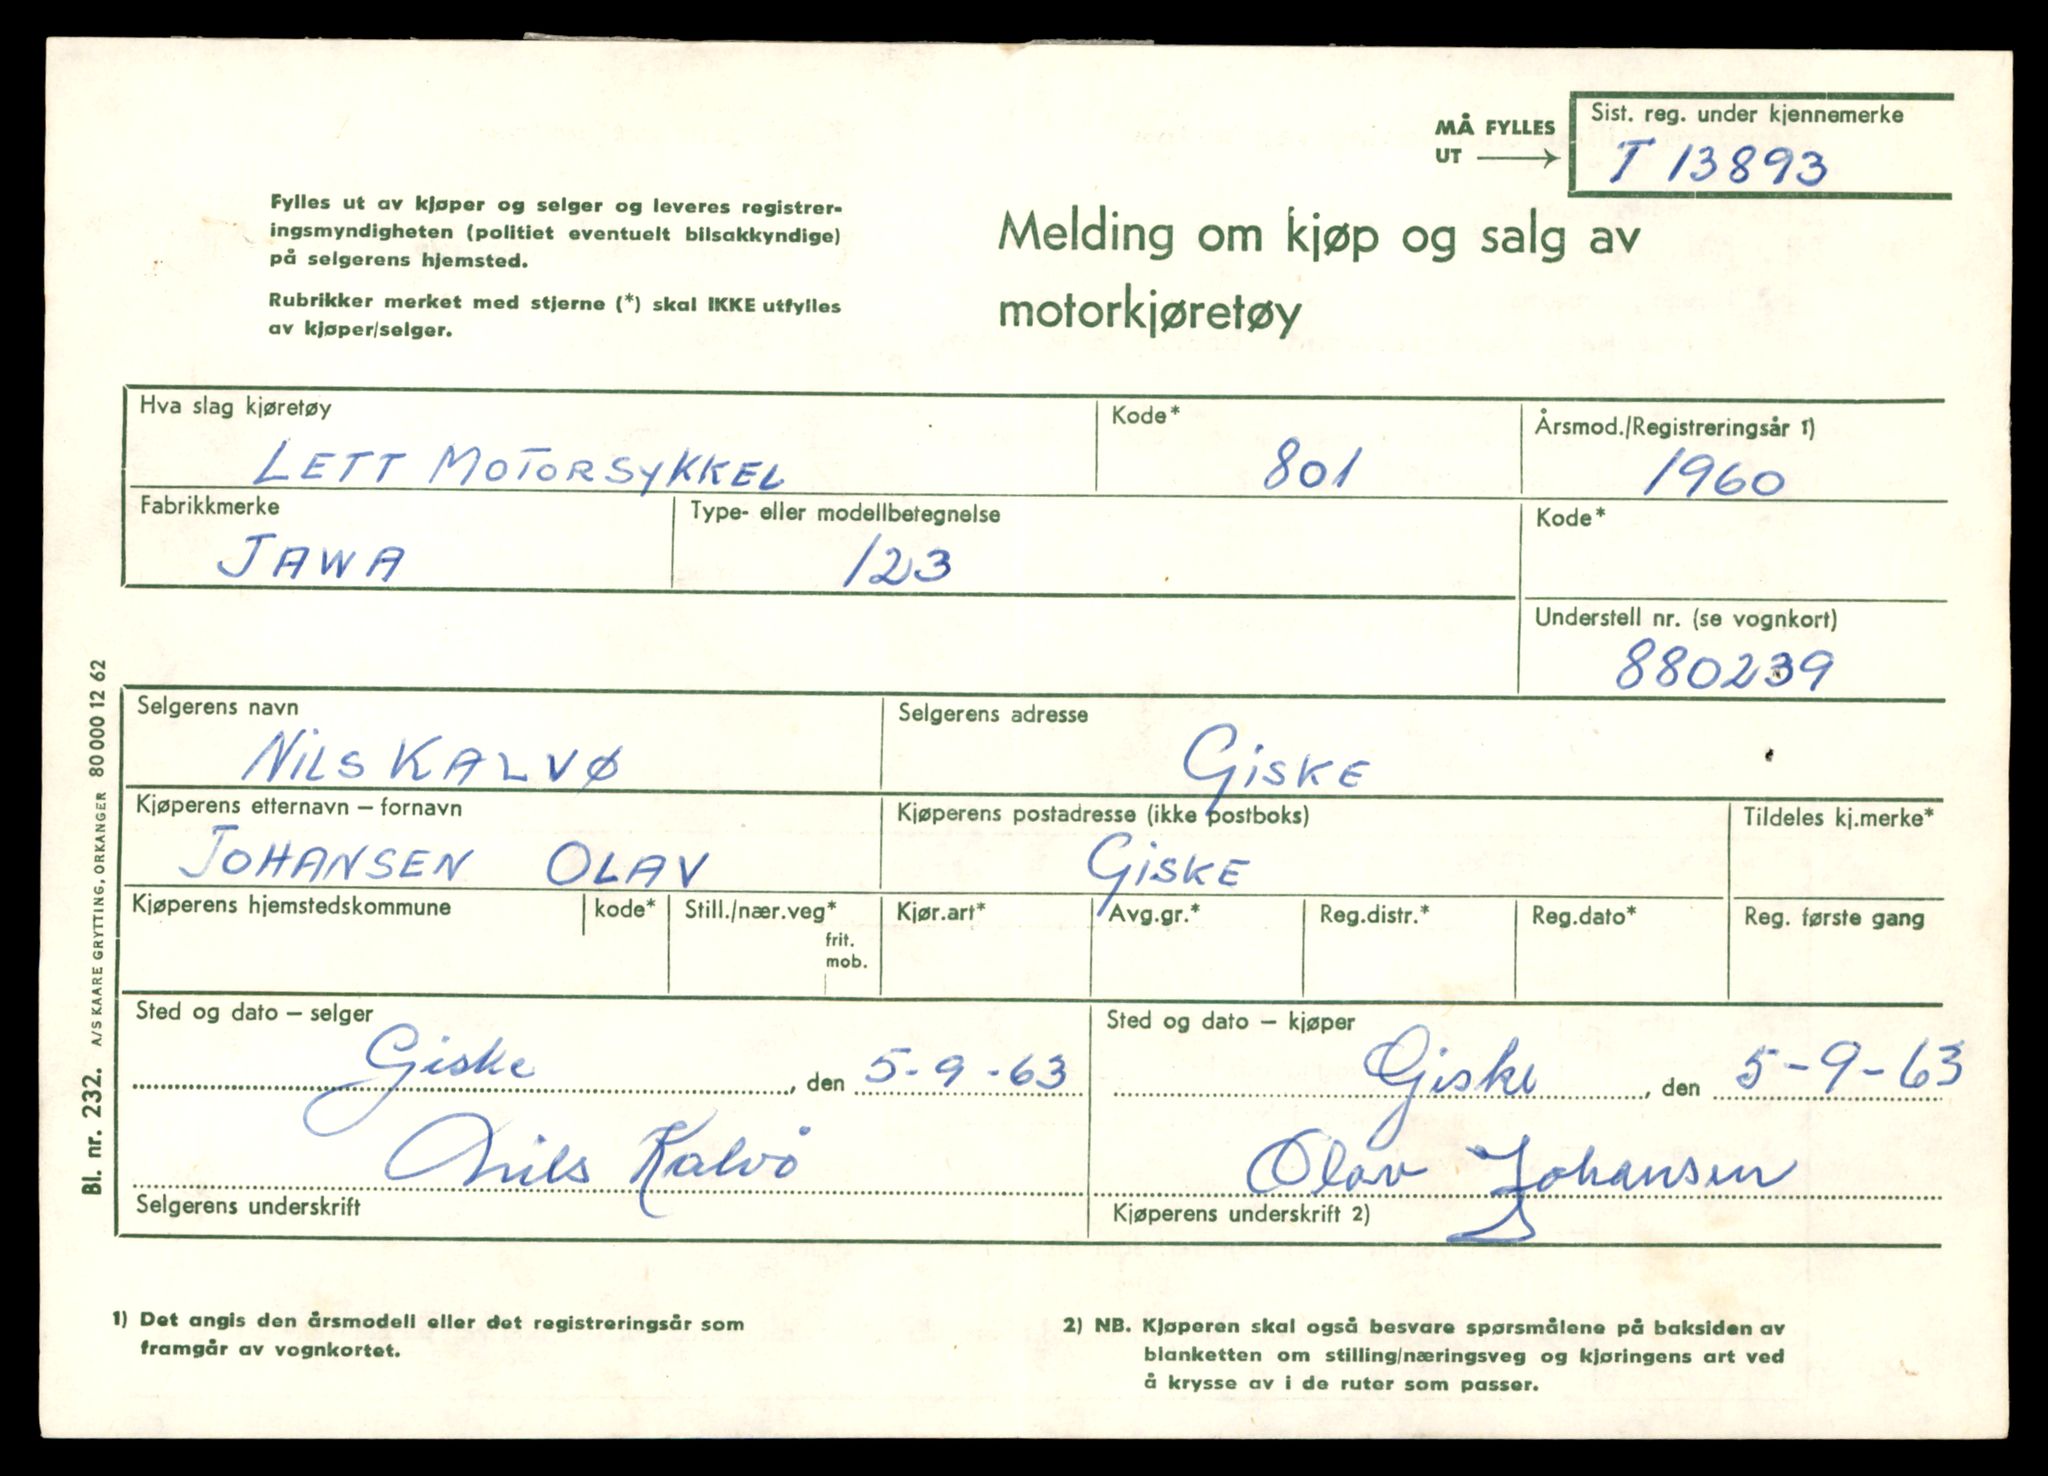 MÅ FYLLES
UT
Sist. reg. under kjennemerke
T 13893
Fylles ut av kjøper og selger og leveres registrer-
ingsmyndigheten (politiet eventuelt bilsakkyndige)
på selgerens hjemsted.
Rubrikker merket med stjerne (*) skal IKKE utfylles
av kjøper/selger.
Melding om kjøp og salg av
motorkjøretøy
Hva slag kjøretøy
LETT MOTORSYKKEL
Kode*
801
Årsmod./Registreringsår 1)
1960
Fabrikkmerke
JAWA
Type- eller modellbetegnelse
123
Kode*
Understell nr. (se vognkort)
880239
Selgerens navn
NILS KALVØ
Selgerens adresse
GISKE
Kjøperens etternavn – fornavn
JOHANSEN OLAV
Kjøperens postadresse (ikke postboks)
GISKE
Tildeles kj.merke*
Kjøperens hjemstedskommune
kode*
Still./nær.veg*
frit.
mob.
Kjør.art*
Avg.gr.*
Reg.distr.*
Reg.dato*
Reg. første gang
Sted og dato – selger
Giske, den 5-9-63
Nils Kalvö
Selgerens underskrift
Sted og dato – kjøper
Giske, den 5-9-63
Olav Johansen
Kjøperens underskrift 2)
1) Det angis den årsmodell eller det registreringsår som
framgår av vognkortet.
2) NB. Kjøperen skal også besvare spørsmålene på baksiden av
blanketten om stilling/næringsveg og kjøringens art ved
å krysse av i de ruter som passer.
Bl. nr. 232. A/S KAARE GRYTTING, ORKANGER 80 000 12 62